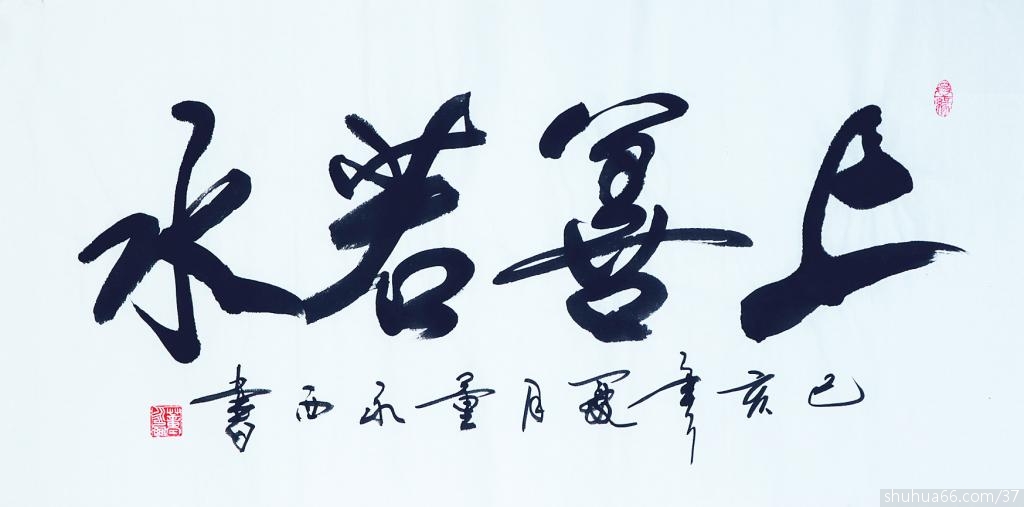 上善若水
己亥年夏月董永西書
shuhua66.com/37